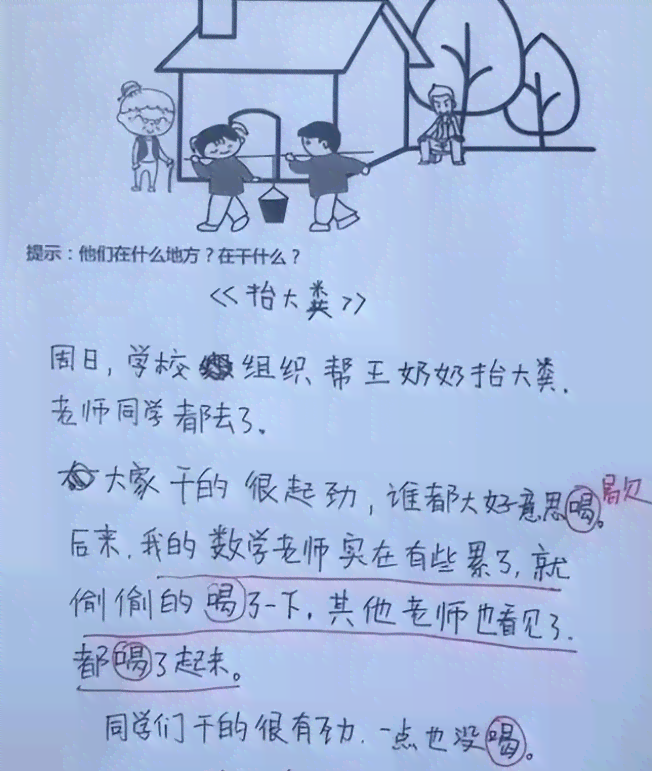 提示：他们在什么地方？在干什么？
《抬大粪》
周日，学校组织帮王奶奶抬大粪．
老师同学都去了。
大家干的很起劲，谁都大好意思喝。歇
后来．我的数学老师实在有些累了，就
偷偷的喝了一下．其他老师也看见了．
都喝了起来。
同学们干的很有劲．一点也没喝。